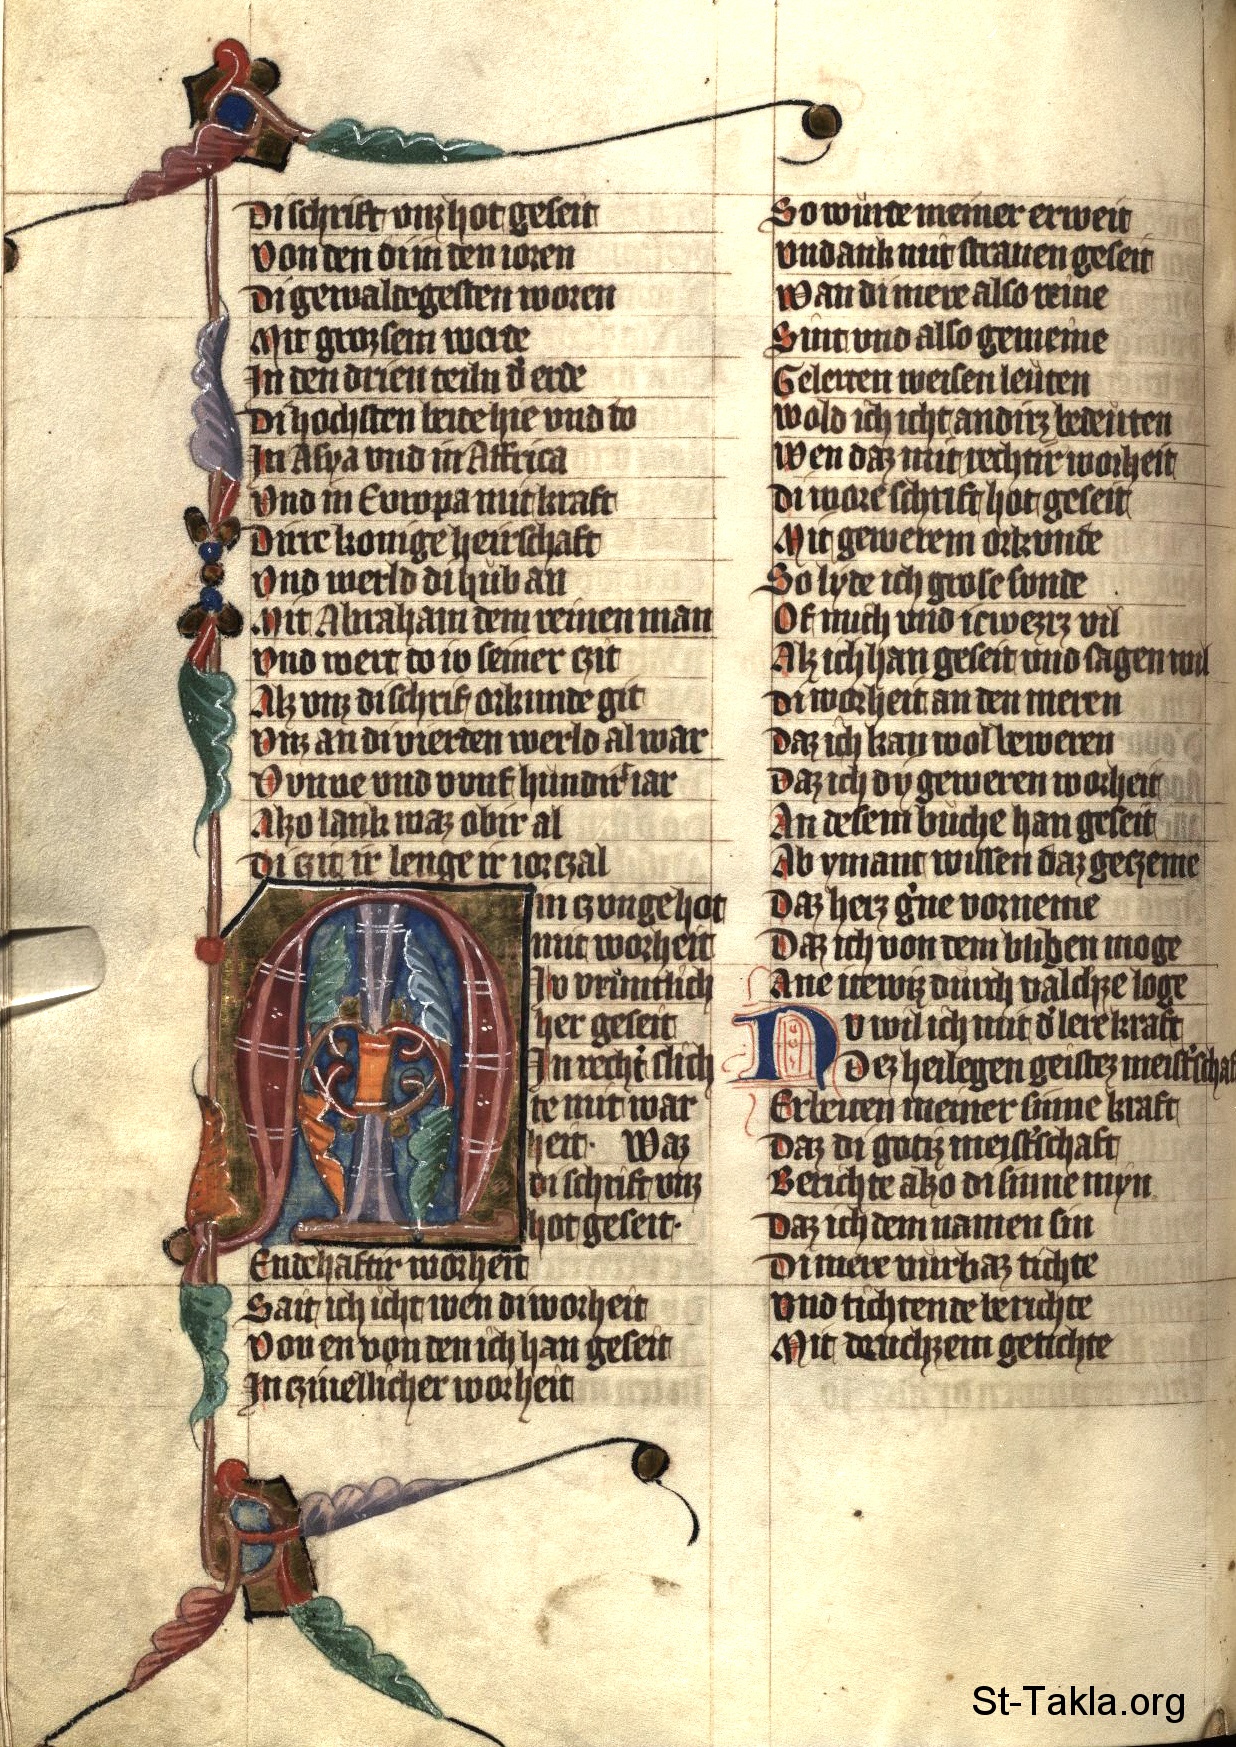 Di schrift vnz hot geseit
Von den di in den ioren
Di gewaltegesten woren
Mit grozsem werde
In den drien teiln d' erde
Di hochsten beide hie vnd do
In Asya vnd in Affrica
Vnd in Evropa mit kraft
Dirre konige heirschaft
Vnd werld di hub an
Mit Abraham dem reinen man
Vnd wert do io seiner czit
Alz vnz di schrift orkunde git
Vnz an di vierden werld al war
Nvnne vnd vunf hundirt iar
Alzo lank waz obir al
Di czit ir lenge ir iorczal
Min czunge hot
mit worheit
Iv vruntlich
her geseit
In recht' slich
te mit war
heit. Waz
di schrift vnz
hot geseit.
Endehaftir worheit
Sait ich icht wen di worheit
Von en von den ich han geseit
In czwiellicher worheit
So wurde meiner erweit
Vnd ank mit strauen geseit
Wan di mere also reine
Sint vnd also gemeine
Gelerten weisen leuten
Wold ich icht andirz bedeuten
Wen daz mit rechtir worheit
Di wore schrift hot geseit
Mit gewerem orkunde
So lyde ich grose sunde
Of mich vnd icweziz vil
Alz ich han geseit vnd sagen wil
Di worheit an den meren
Daz ich kan wol beweren
Daz ich dy geweren worheit
An desem buche han geseit
Ab ymant wissen daz geczeme
Daz herz g'ne vorneme
Daz ich von dem blyben moge
Ane itewiz durch valchze loge
Nv wil ich mit d' lere kraft
Dez heilegen geistez meist'schaft
Erleuten meiner sinne kraft
Daz di gotiz meist'schaft
Berichte alzo di sinne myn
Daz ich dem namen sin
Di mere vurbaz tichte
Vnd tichtende berichte
Mit deuchzem getichte
St-Takla.org